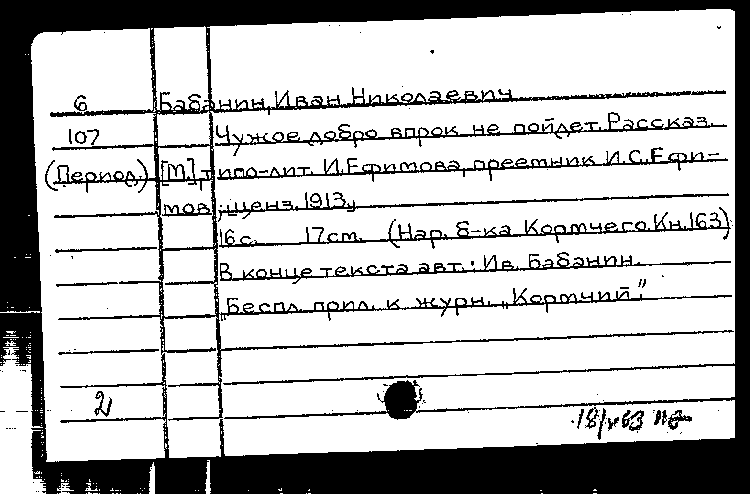 6 Бабанин, Иван Николаевич
107 Чужое добро впрок не пойдет. Рассказ.
(Период.) [М.], типо-лит. И. Ефимова, преемник И.С. Ефи-
мов, ценз. 1913,
16 с. 17 cm. (Нар. б-ка Кормчего. Кн. 163)
В конце текста авт.: Ив. Бабанин.
„Беспл. прил. к журн. „Кормчий“.
2
18/v 63